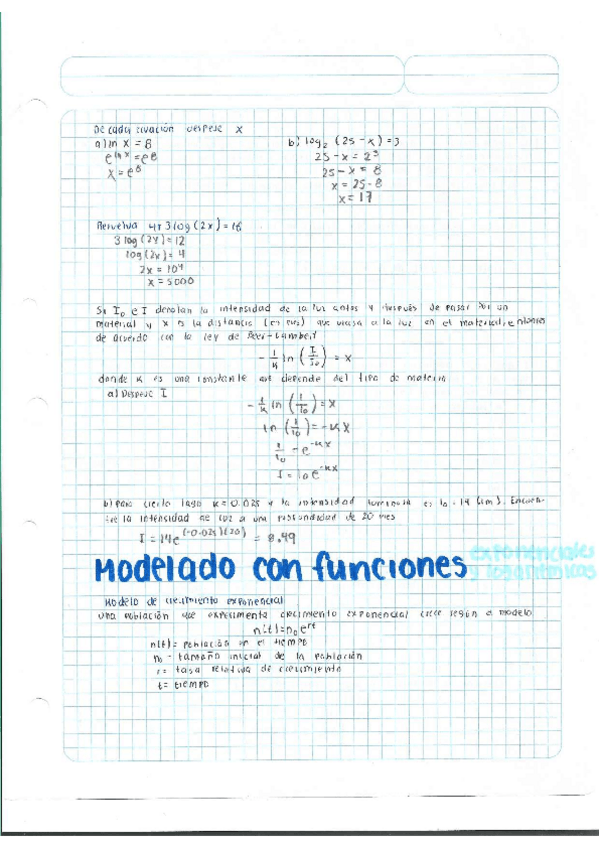 De cada ecuación despeje x
a) ln x = 8
e^ln x = e^8
x = e^8
b) log₂ (25 - x) = 3
25 - x = 2³
25 - x = 8
x = 25 - 8
x = 17
Resuelva 4 + 3 log (2x) = 16
3 log (2x) = 12
log (2x) = 4
2x = 10⁴
x = 5000
Si I₀ e I denotan la intensidad de la luz antes y después de pasar por un
material y x es la distancia (en pies) que viaja a la luz en el material, entonces
de acuerdo con la ley de Beer-Lambert
- 1/k ln (I/I₀) = x
donde k es una constante que depende del tipo de materia
a) Despeje I
- 1/k ln (I/I₀) = x
ln (I/I₀) = -kx
I/I₀ = e^-kx
I = I₀e^-kx
b) Para cierto lago k = 0.025 y la intensidad luminosa es I₀ = 14 (lm). Encuen-
tre la intensidad de luz a una profundidad de 20 pies
I = 14e^(-0.025)(20) = 8.49
Modelado con funciones exponenciales
y logarítmicas
Modelo de crecimiento exponencial
una población que experimenta crecimiento exponencial crece según el modelo
n(t) = n₀e^rt
n(t) = población en el tiempo
n₀ = tamaño inicial de la población
r = tasa relativa de crecimiento
t = tiempo